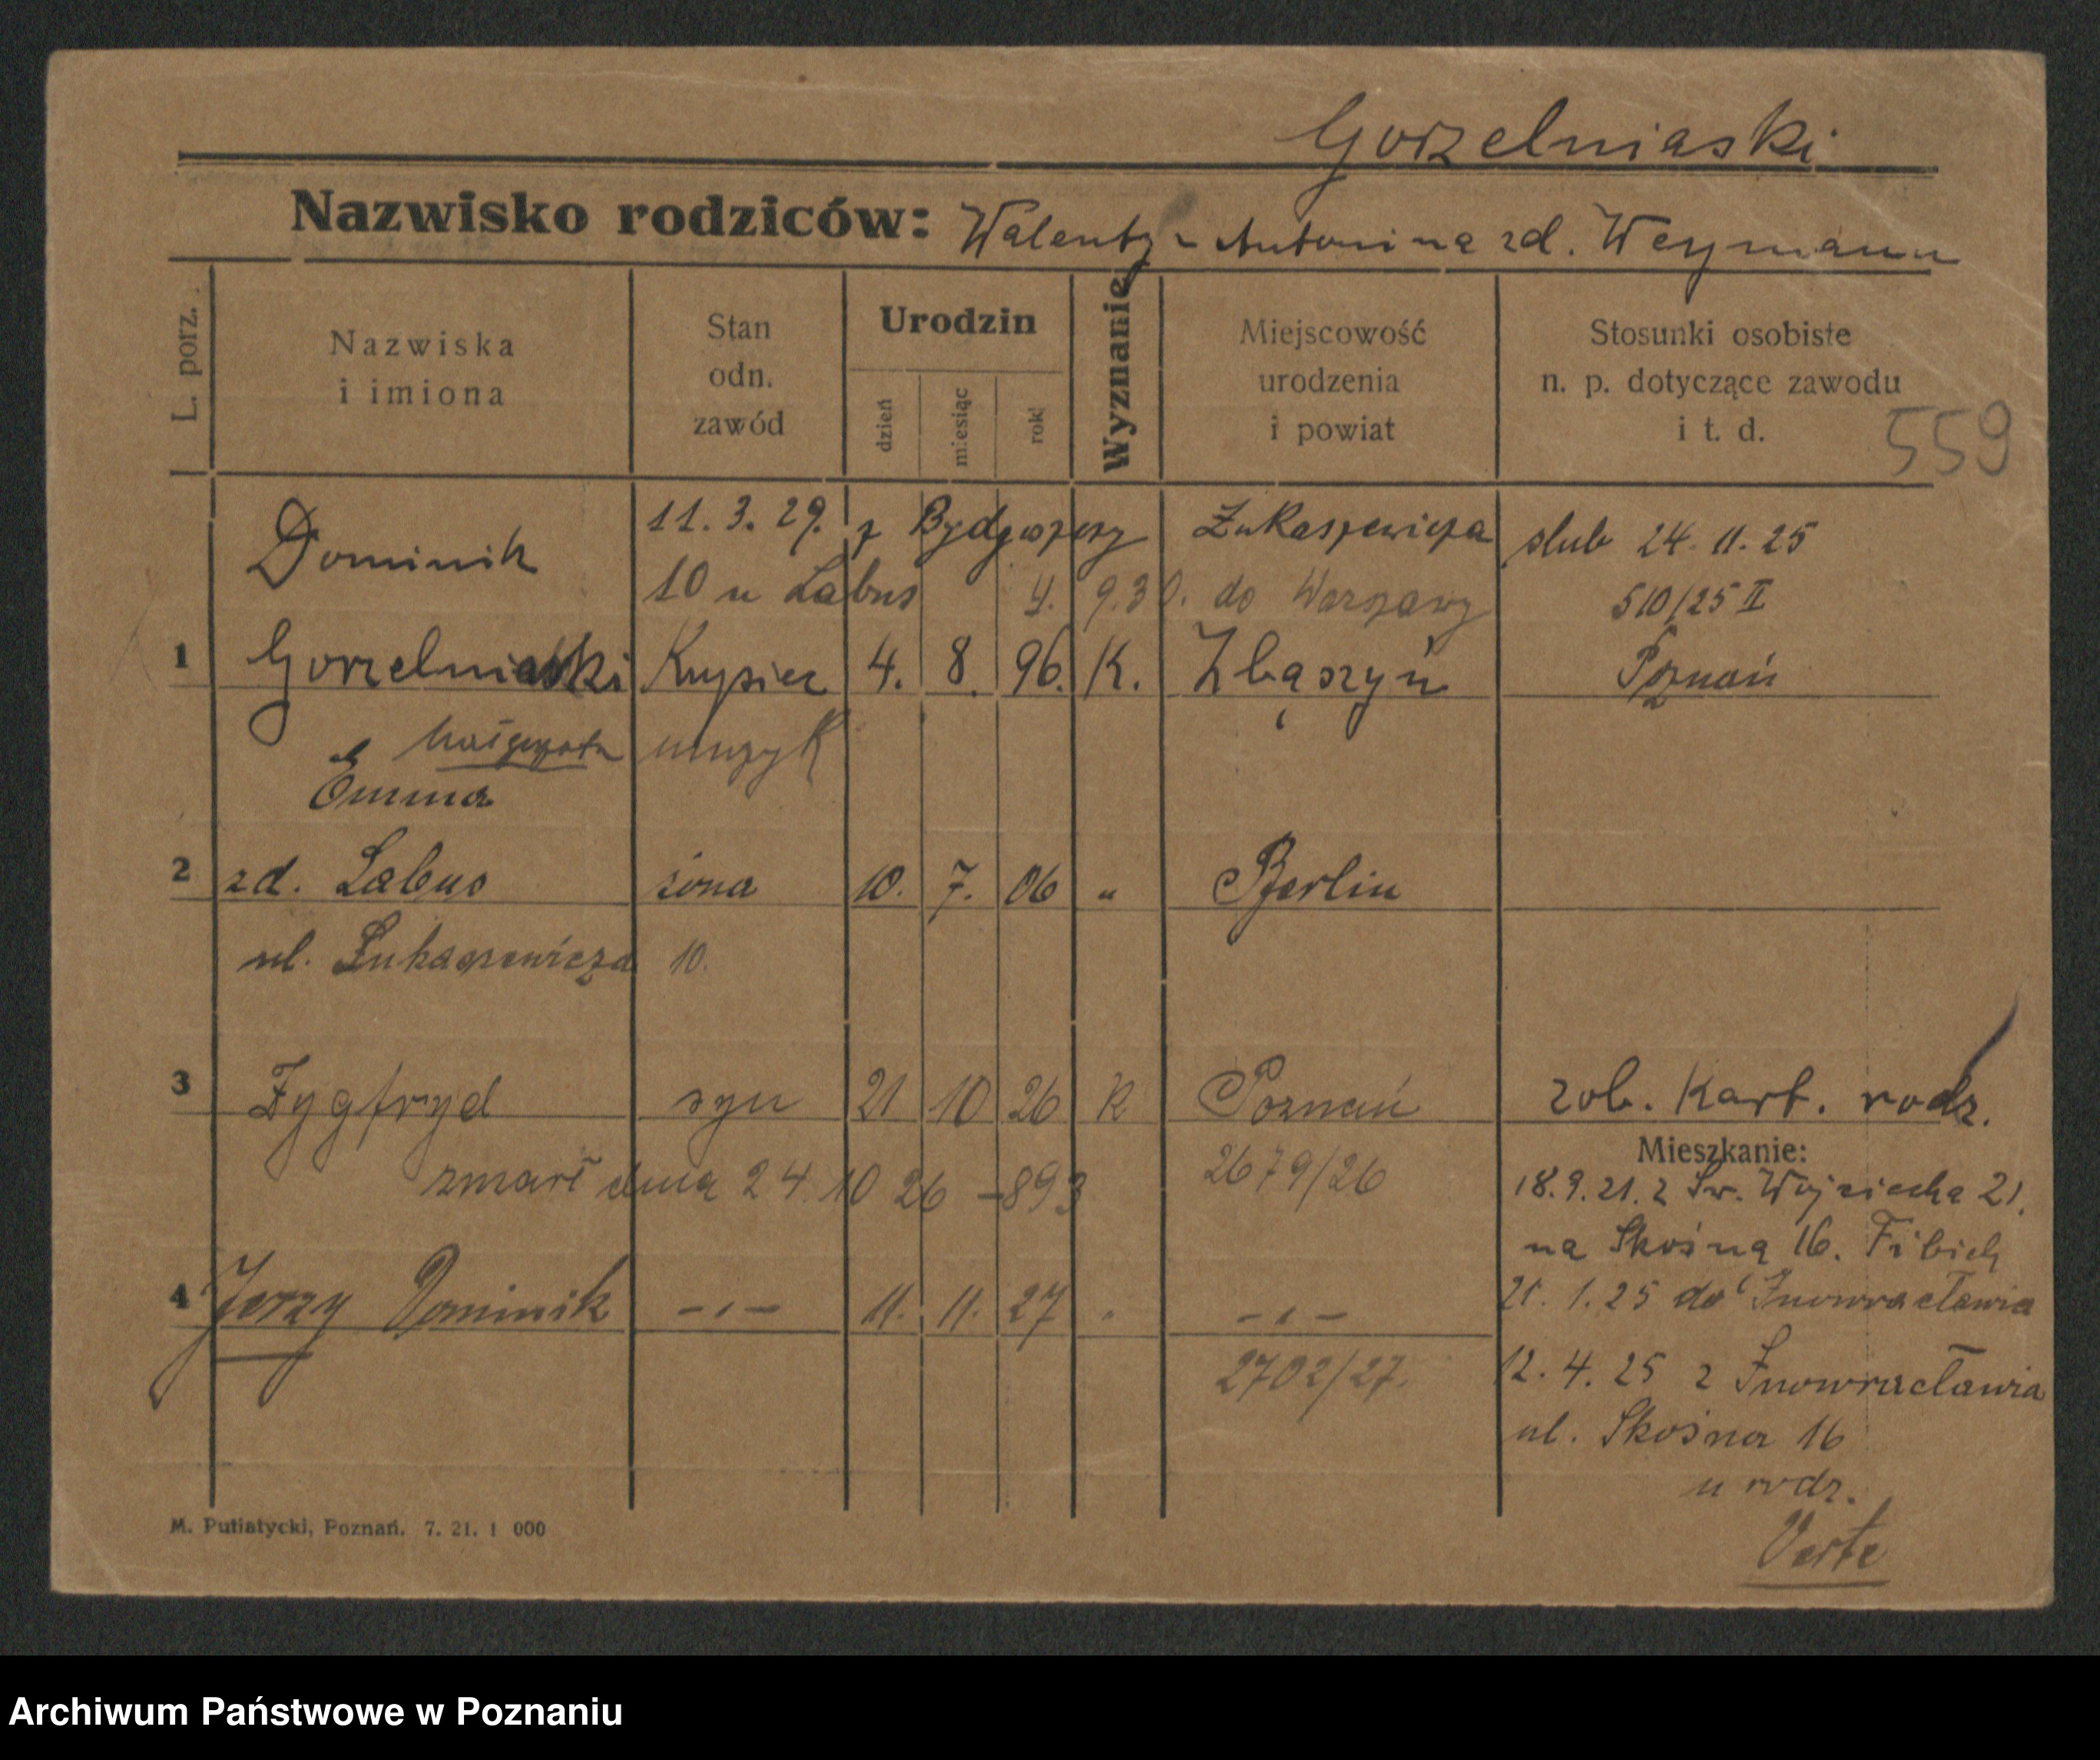 Gorzelniaski
Nazwisko rodziców: Walenty - Antonina zd. Weymann
L. porz.
Nazwiska
i imiona
Stan
odn.
zawód
Urodzin
dzień
miesiąc
rok
Wyznanie
Miejscowość
urodzenia
i powiat
Stosunki osobiste
n. p. dotyczące zawodu
i t. d.
559
11. 3. 29. z Bydgoszczy Łukaszewicza
10 u Labus 4. 9.30. do Warszawy
Dominik
ślub 24. 11. 25
510/25 II
1 Gorzelniaski 4. 8. 96. K. Zbąszyń Poznań
muzyk
Emma
2 zd. Labus żona 10. 7. 06 " Berlin
ul. Łukaszewicza 10.
3 Zygfryd syn 21 10 26 K Poznań zob. Kart. rodz.
zmarł dnia 24. 10 26 - 893
2679/26
4 Jerzy Dominik -"- 11. 11. 27 " -"-
2702/27.
Mieszkanie:
18. 9. 21. z Św. Wojciecha 21.
na Skośną 16. Fibich
21. 1. 25 do Inowracławia
12. 4. 25 z Inowracławia
ul. Skośna 16
u rodz.
Verte
M. Putiatycki, Poznań. 7. 21. 1 000
Archiwum Państwowe w Poznaniu